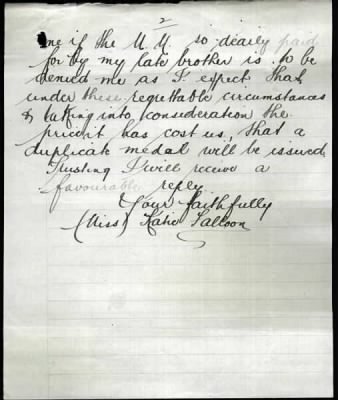 2
me if the M.M. so dearly paid
for by my late brother is to be
denied me as I expect that
under these regrettable circumstances
& taking into consideration the
price it has cost us, that a
duplicate medal will be issued
Trusting I will receive a
favourable reply
Your faithfully
(Miss) Katie Falloon